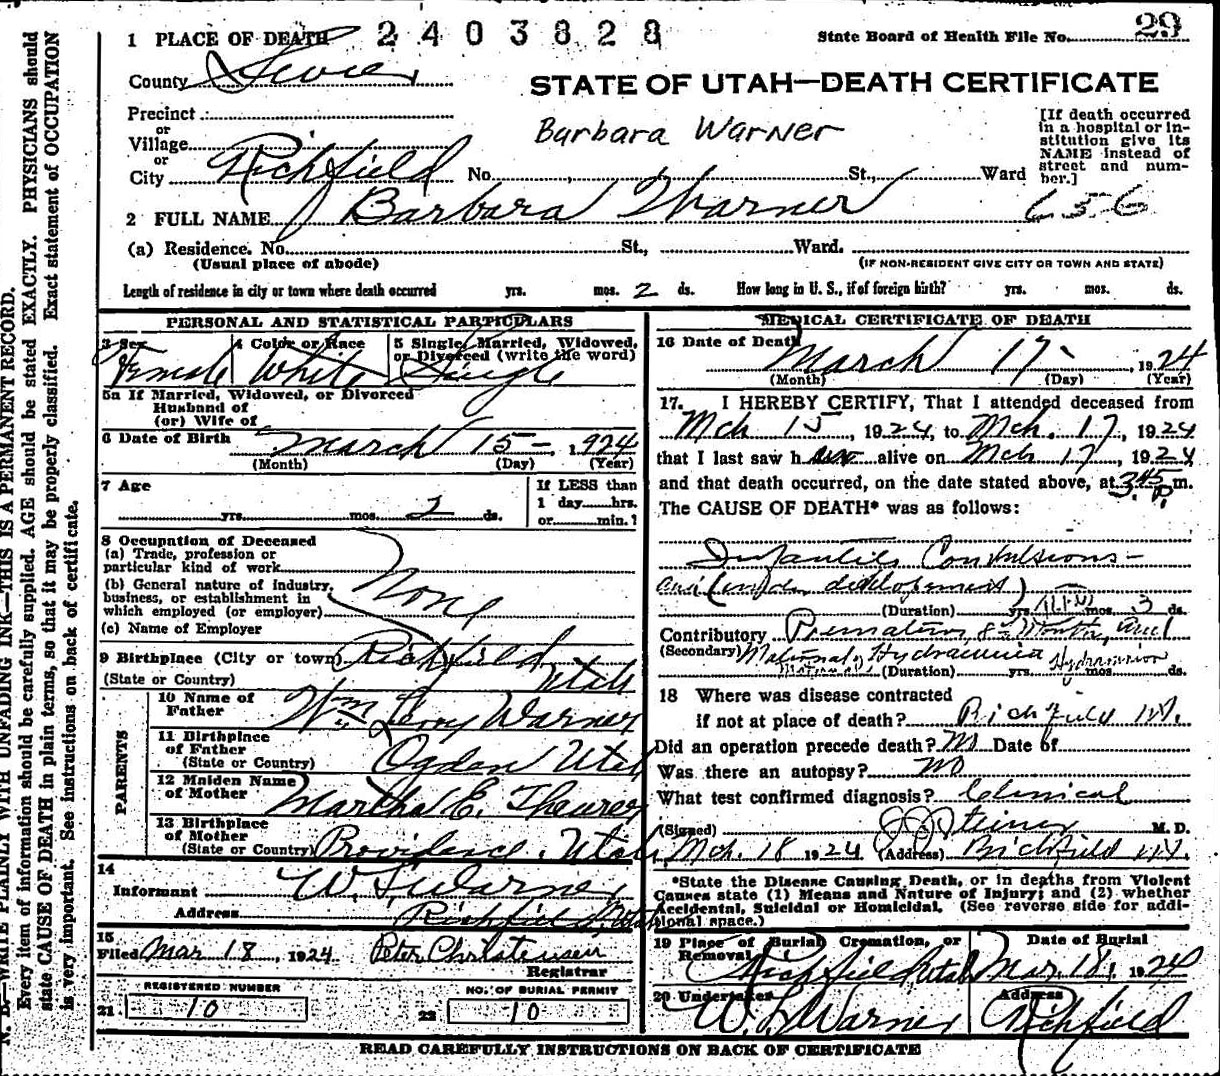 1 PLACE OF DEATH 2403828 State Board of Health File No. 29
County Sevier
STATE OF UTAH—DEATH CERTIFICATE
Precinct
or
Village
or
City Richfield No. St., Ward
Barbara Warner
[If death occurred
in a hospital or in-
stitution give its
NAME instead of
street and num-
ber.]
2 FULL NAME Barbara Warner 656
(a) Residence. No. St., Ward.
(Usual place of abode) (IF NON-RESIDENT GIVE CITY OR TOWN AND STATE)
Length of residence in city or town where death occurred yrs. mos. 2 ds. How long in U. S., if of foreign birth? yrs. mos. ds.
PERSONAL AND STATISTICAL PARTICULARS
3 Sex 4 Color or Race 5 Single, Married, Widowed,
or Divorced (write the word)
Female White Single
5a If Married, Widowed, or Divorced
Husband of
(or) Wife of
6 Date of Birth March 15— 1924
(Month) (Day) (Year)
7 Age
yrs. mos. 2 ds.
If LESS than
1 day hrs.
or min.?
8 Occupation of Deceased
(a) Trade, profession or
particular kind of work
(b) General nature of industry,
business, or establishment in
which employed (or employer)
None
(c) Name of Employer
9 Birthplace (City or town) Richfield
(State or Country) Utah
PARENTS
10 Name of
Father Wm Leroy Warner
11 Birthplace
of Father
(State or Country) Ogden Utah
12 Maiden Name
of Mother Martha E. Theurer
13 Birthplace
of Mother
(State or Country) Providence, Utah
14
Informant W. L. Warner
Address Richfield, Utah
15
Filed Mar 18, 1924 Peter Christensen
Registrar
REGISTERED NUMBER NO. OF BURIAL PERMIT
21 10 22 10
MEDICAL CERTIFICATE OF DEATH
16 Date of Death March 17, 1924
(Month) (Day) (Year)
17. I HEREBY CERTIFY, That I attended deceased from
Mch 15, 1924, to Mch. 17, 1924
that I last saw her alive on Mch 17, 1924
and that death occurred, on the date stated above, at 3:45 p.m.
The CAUSE OF DEATH* was as follows:
Infantile Convulsions—
development)
(Duration) yrs. mos. 3 ds.
Contributory Premature, 8th Month, and
(Secondary) Maternal Hydramnia Hydramnion
(Duration) yrs. mos. ds.
18 Where was disease contracted
if not at place of death? Richfield Ut.
Did an operation precede death? No Date of
Was there an autopsy? No
What test confirmed diagnosis? Clinical
(Signed) J J Steiner M. D.
Mch. 18 1924 (Address) Richfield Ut.
*State the Disease Causing Death, or in deaths from Violent
Causes state (1) Means and Nature of Injury; and (2) whether
Accidental, Suicidal or Homicidal. (See reverse side for addi-
tional space.)
19 Place of Burial Cremation, or Date of Burial
Removal
Richfield, Utah Mar. 18, 1924
20 Undertaker Address
W. L. Warner Richfield
READ CAREFULLY INSTRUCTIONS ON BACK OF CERTIFICATE
N. B.—WRITE PLAINLY WITH UNFADING INK—THIS IS A PERMANENT RECORD.
Every item of information should be carefully supplied. AGE should be stated EXACTLY. PHYSICIANS should
state CAUSE OF DEATH in plain terms, so that it may be properly classified. Exact statement of OCCUPATION
is very important. See instructions on back of certificate.